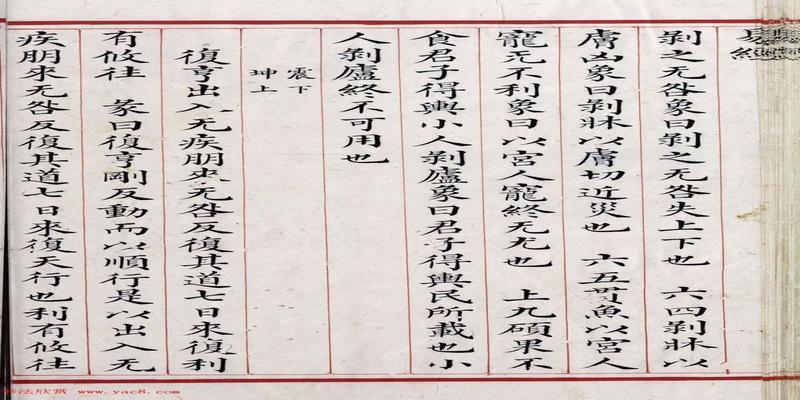 易經
剝之无咎象曰剝之无咎失上下也　六四剝牀以
膚凶象曰剝牀以膚切近災也　六五貫魚以宮人
寵无不利象曰以宮人寵終无尤也　上九碩果不
食君子得輿小人剝廬象曰君子得輿民所載也小
人剝廬終不可用也
震下
坤上
復亨出入无疾朋來无咎反復其道七日來復利
有攸往　彖曰復亨剛反動而以順行是以出入无
疾朋來无咎反復其道七日來復天行也利有攸往
法欣赏 www.yac8.com